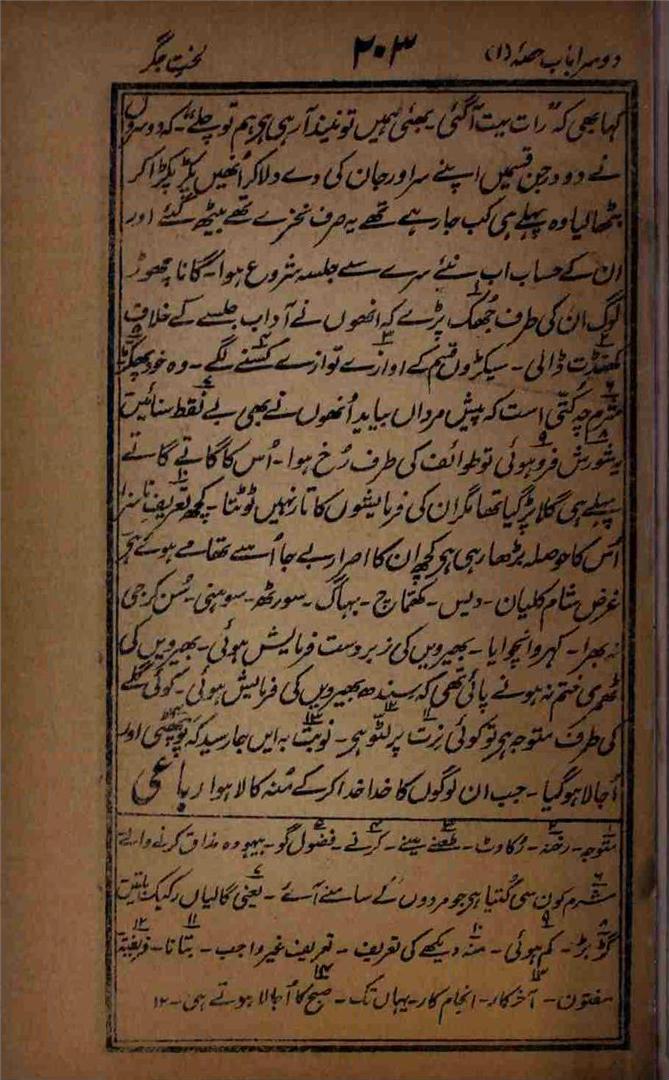 دوسرا باب حصہ (۱) ۲۰۳ لختِ جگر
کہا بھی کہ "رات بہت آ گئی بھئی ہمیں تو نیند آ رہی ہی ہم تو چلے"۔ کہ دوسروں
نے دو درجن قسمیں اپنے سر اور جان کی دے دلا کر اُنھیں پکڑ پکڑا کر
بٹھا لیا وہ پہلے ہی کب جا رہے تھے یہ صرف نخرے تھے بیٹھ گئے اور
ان کے حساب اب نئے سرے سے جلسہ شروع ہوا۔ گانا چھوڑ
لوگ ان کی طرف جُھک پڑے کہ انھوں نے آداب جلسے کے خلاف
کھنڈت ڈالی۔ سیکڑوں قسم کے آوازے توازے کسنے لگے۔ وہ خود پھکڑ
شرم چہ کُتّی است کہ پیش مرداں بیاید اُنھوں نے بھی بے نقط سنائیں
یہ شورش فرو ہوئی تو طوائف کی طرف رُخ ہوا۔ اُس کا گاتے گاتے
پہلے ہی گلا پڑ گیا تھا مگر ان کی فرمایشوں کا تار نہیں ٹوٹتا۔ کچھ تعریفِ ناسزا
اُس کا حوصلہ بڑھا رہی ہی کچھ ان کا اصرار بے جا اُسے تھامے ہوئے ہی
غرض شام کلیان۔ دیس۔ کھماچ۔ بہاگ۔ سورٹھ۔ سوہنی۔ سُن کر جی
نہ بھرا۔ کہروا نچوایا۔ بھیرویں کی زبردست فرمایش ہوئی۔ بھیرویں کی
ٹھمری ختم نہ ہونے پائی تھی کہ سندھ بھیرویں کی فرمایش ہوئی۔ کوئی گلے
کی طرف متوجہ ہی تو کوئی نرت پر لٹو ہی۔ نوبت بہ ایں جا رسید کہ پو پھٹی اور
اُجالا ہو گیا۔ جب ان لوگوں کا خدا خدا کر کے مُنہ کالا ہوا رباعی
۱ متوجہ۔ ۲ رخنہ۔ رُکاوٹ۔ ۳ طعنے مہنے۔ ۴ کرنے۔ ۵ فضول گو۔ بیہودہ مذاق کرنے والے
۶ شرم کون سی کُتیا ہی جو مردوں کے سامنے آئے۔ ۷ یعنی گالیاں رکیک باتیں
۸ گڑبڑ۔ ۹ کم ہوئی۔ ۱۰ منہ دیکھے کی تعریف۔ تعریف غیر واجب۔ ۱۱ بتانا۔ ۱۲ فریفتہ
مفتون۔ ۱۳ آخر کار۔ انجام کار۔ یہاں تک۔ ۱۴ صبح کا اُجالا ہوتے ہی۔ ۱۲